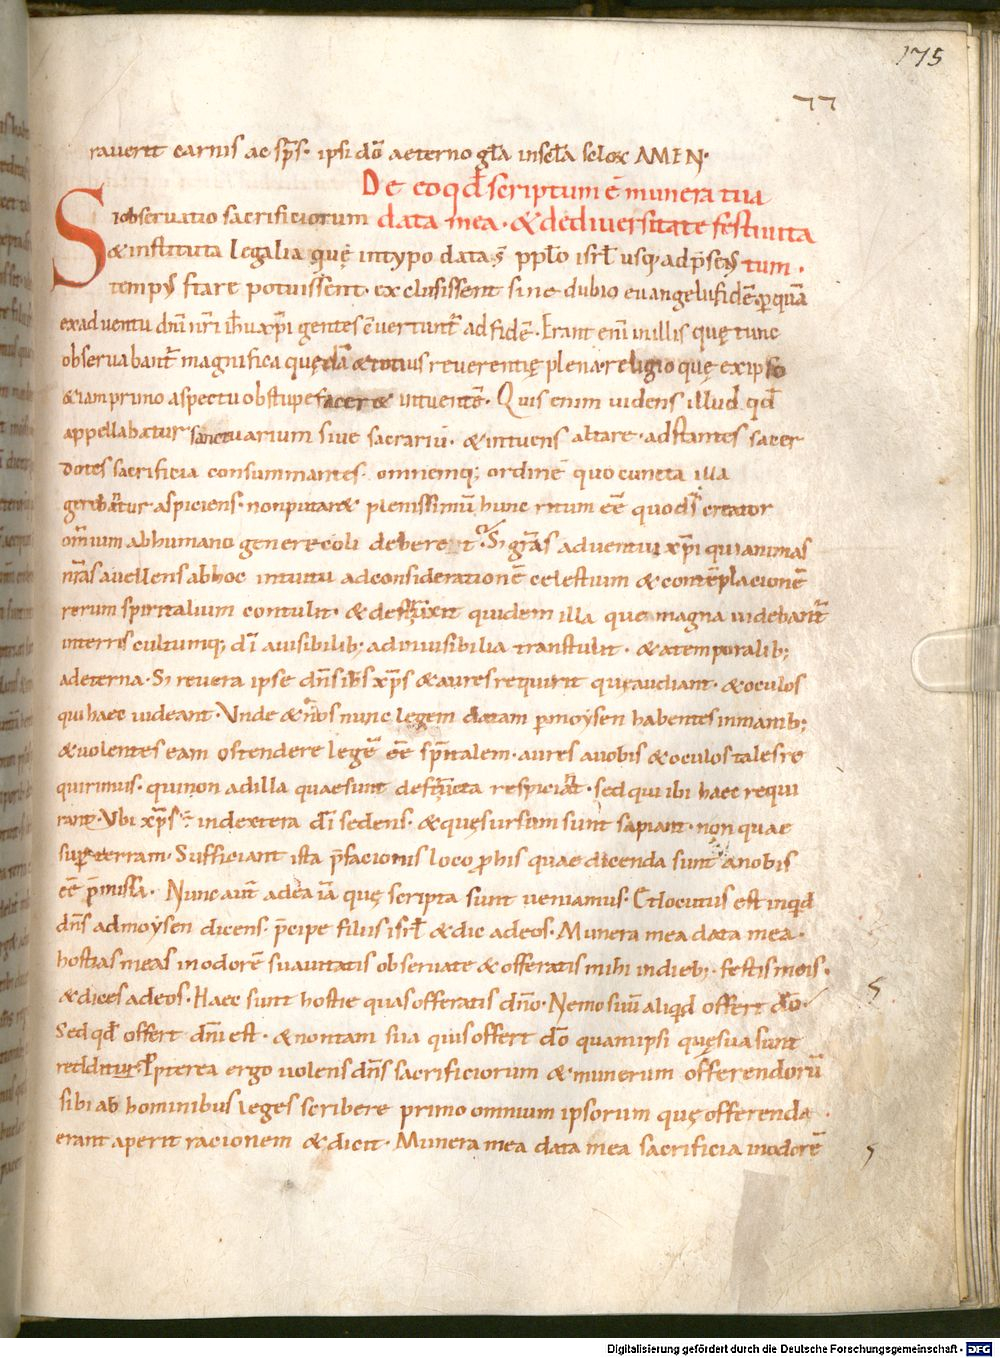 175
77
raverit carnis ac sp̄s· ipsi dō aeterno gl̄a in sc̄la sclox AMEN·
De eo qd̄ scriptum ē munera tua
Si observatio sacrificiorum data mea· & de diversitate festivita
& instituta legalia quę in typo data s̄ pplo isrl̄ usq; ad p̄sens tum·
tempus stare potuissent· exclusissent sine dubio evangelii fidē· p quā
ex adventu dn̄i nr̄i ih̄u xp̄i gentes cōvertunt̄ ad fidē· Erant enī in illis quę tunc
observabant̄ magnifica quędā & totius reverentię plena religio quę ex ipso
& iam primo aspectu obstupefacer& intuentē· Quis enim videns illud qd̄
appellabatur sanctuarium sive sacrariū· & intuens altare· adstantes sacer
dotes sacrificia consummantes· omnemq; ordinē quo cuncta illa
gerebantur aspiciens· non putar& plenissimū hunc ritum eē quo ds̄ creator
omnium ab humano genere coli deberet· Sz gr̄as adventui xp̄i qui animas
nr̄as avellens ab hoc intuitu ad considerationē celestium & contēplacionē
rerum spiritalium contulit· & destruxit quidem illa que magna videbant̄
in terris cultumq; dī a visibilib; ad invisibilia transtulit· & a temporalib;
ad eterna· Sz revera ipse dn̄s ih̄s xp̄s & aures requirit quę audiant· & oculos
qui haec videant· Unde & nos nunc legem datam p moysen habentes in manib;
& volentes eam ostendere legē eē sp̄italem· aures a vobis & oculos tales re
quirimus· qui non ad illa quae sunt destructa respiciāt· sed qui ibi haec requi
rant· Ubi xp̄s ē in dextera dī sedens· & quę sursum sunt sapiant· non quae
super terram· Sufficiant ista p̄facionis loco p his quae dicenda sunt a nobis
eē p̄missa· Nunc aūt ad ea iā quę scripta sunt veniamus· Et locutus est inqd
dn̄s ad moysen dicens· p̄cipe filiis isrl̄ & dic ad eos· Munera mea data mea·
hostias meas in odorē suavitatis observate & offeratis mihi in dieb; festis meis·
& dices ad eos· Haec sunt hostie quas offeratis dn̄o· Nemo suū aliqd offert dō·
Sed qd̄ offert dn̄i est· & non tam sua quis offert dō quam ipsi quę sua sunt
redditur· Propterea ergo volens dn̄s sacrificiorum & munerum offerendorū
sibi ab hominibus leges scribere primo omnium ipsorum quę offerenda
erant aperit racionem & dicit· Munera mea data mea sacrificia in odorē
Digitalisierung gefördert durch die Deutsche Forschungsgemeinschaft - DFG